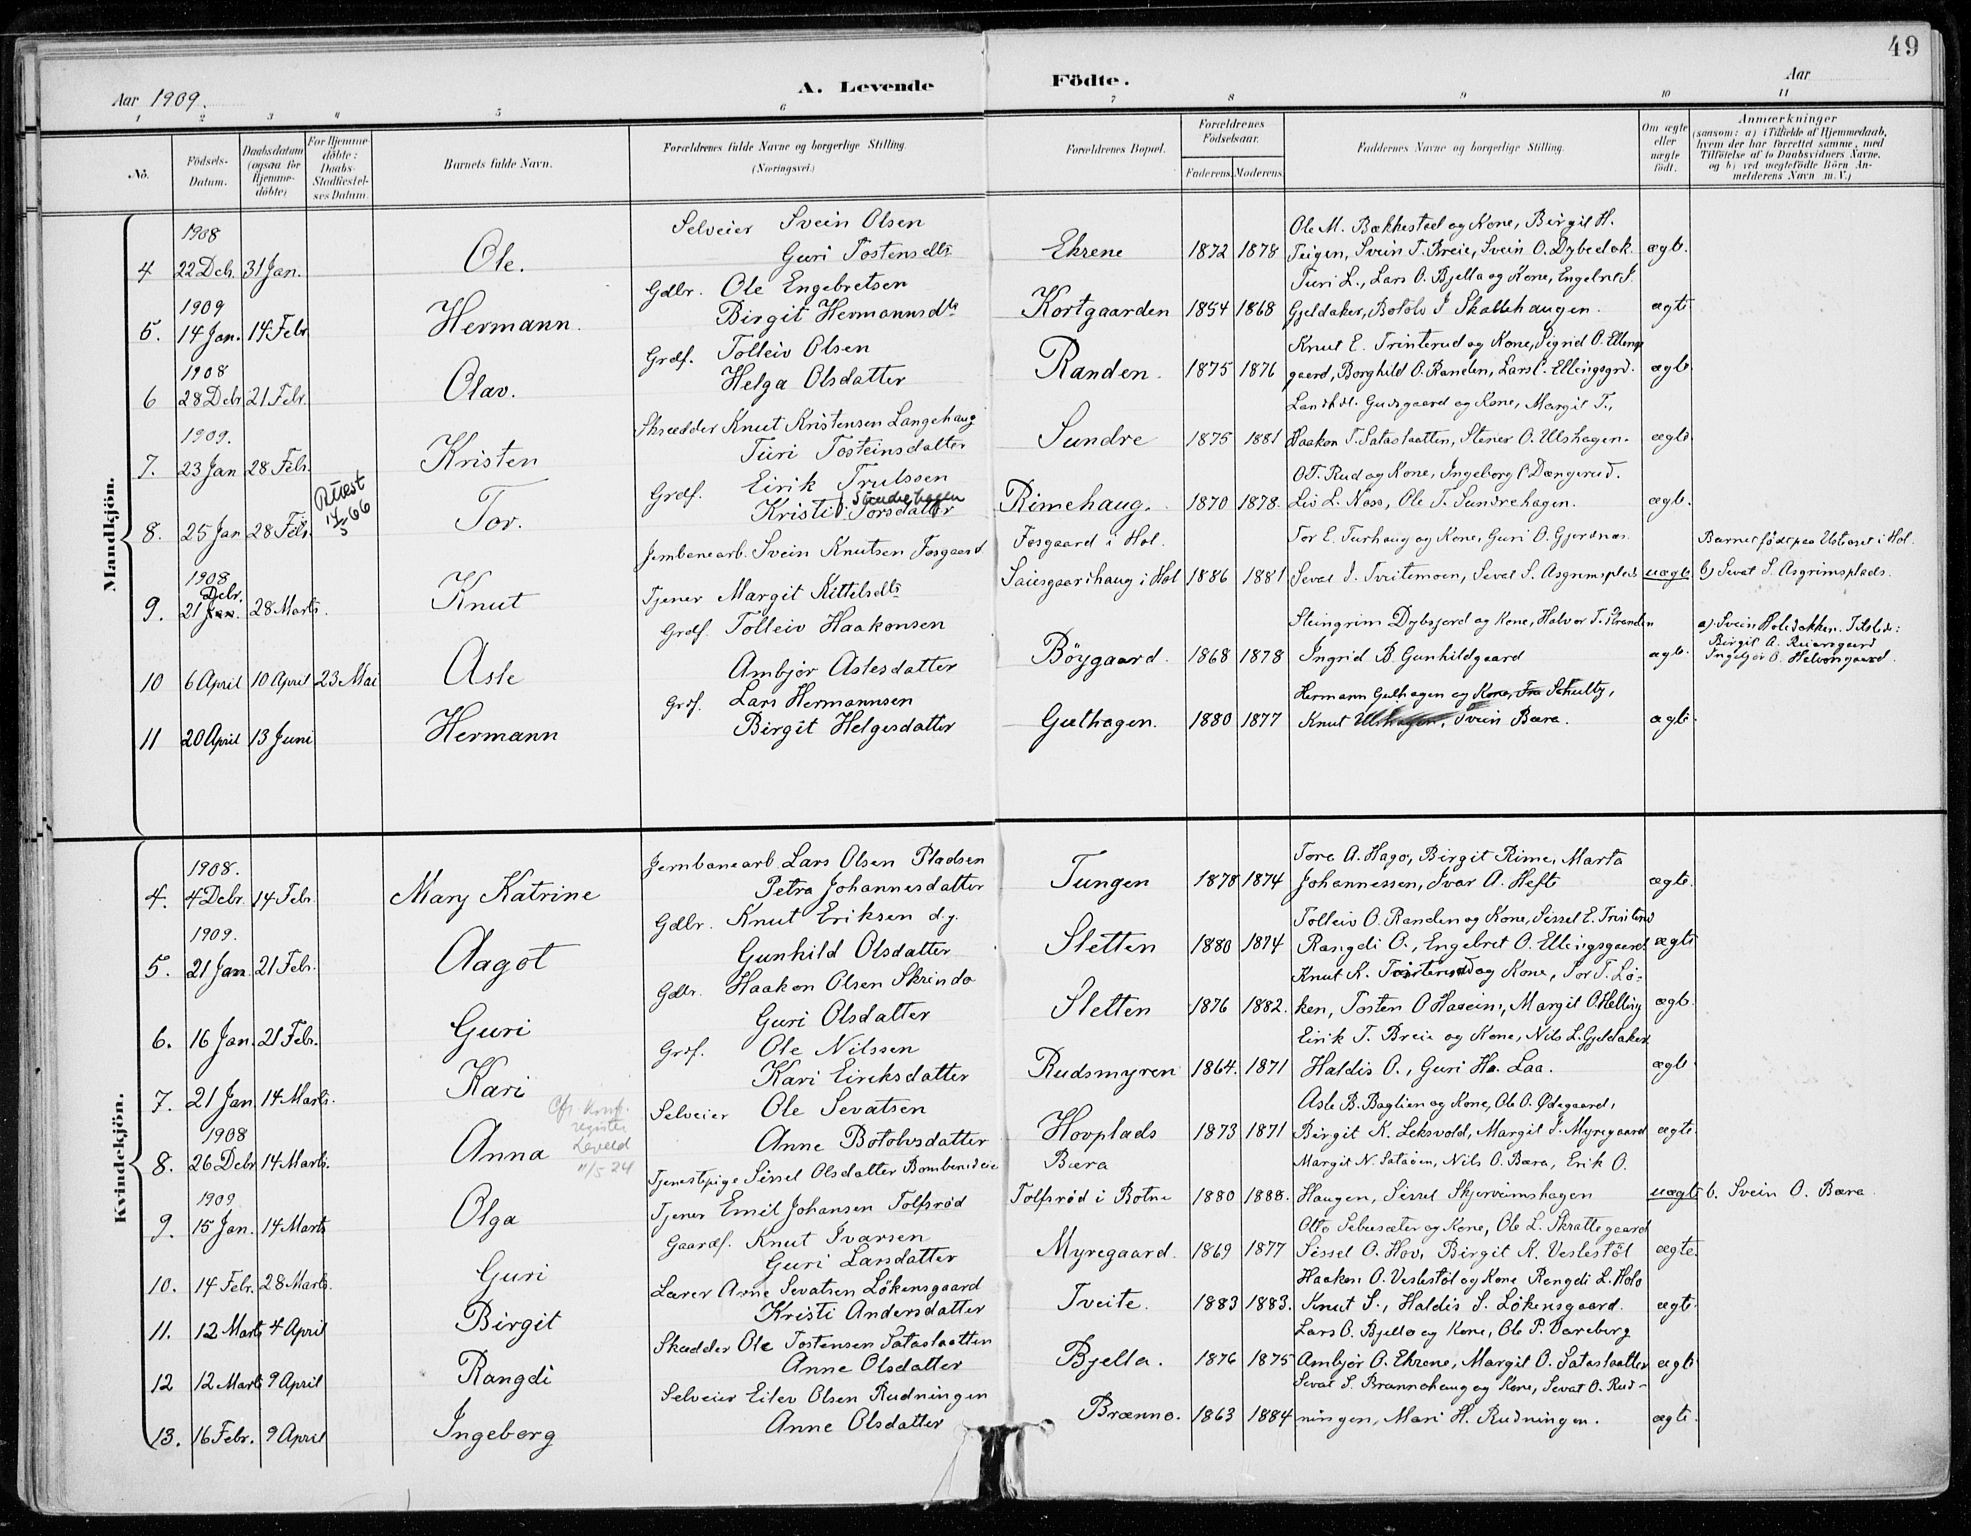 49
Aar 1909.
A. Levende Födte.
Aar
1 2 3 4 5 6 7 8 9 10 11
No.
Födsels-Datum.
Daabsdatum (ogsaa for Hjemmedöbte)
For Hjemmedöbte: Daabs-Stadfæstelses Datum.
Barnets fulde Navn.
Forældrenes fulde Navne og borgerlige Stilling. (Næringsvei.)
Forældrenes Bopæl.
Forældrenes Födselsaar.
Faderens. Moderens.
Faddernes Navne og borgerlige Stilling.
Om ægte eller uægte födt.
Anmærkninger
(saasom: a) i Tilfælde af Hjemmedaab, hvem der har forrettet samme, med Tilföielse af to Daabsvidners Navne, og b) ved uægtefödte Börn Anmelderens Navn m. V.)
Mandkjön.
1908 Selveier Svein Olsen Ole M. Bækkestad og Kone, Birgit H.
4 22 Deb. 31 Jan. Ole. Guri Tostensdtr Ekrene 1872 1878 Teigen, Svein T. Breie, Svein O. Dybedok. ægte.
1909 Gdbr. Ole Engebretsen Turi L., Lars O. Bjella og Kone, Engebret J.
5. 14 Jan. 14 Febr Hermann. Birgit Hermannsdtr Kortgaarden 1854 1868 Gjeldaker, Botolv J Skallehaugen. ægte
1908 Grdf. Tolleiv Olsen Knut E. Trinterud og Kone, Sigrid O. Ellings
6 28 Debr 21 Febr. Olav. Helga Olsdatter Randen. 1875 1876 gaard, Borghild O. Randen, Lars O. Ellingsgrd. ægte.
1909. Skrædder Knut Kristensen Langehaug Landhdl. Gudsgaard og Kone, Margit T.,
7. 23 Jan 28 Febr. Kristen Turi Tosteinsdatter Sundre 1875 1881 Haakon T. Sataslaatten, Stener O. Ulshagen. ægte
Ruest 14/5 66
Grdf. Eirik Trulssen O T. Rud og Kone, Ingeborg O Dængerud.
Sundrehagen
8. 25 Jan 28 Febr. Tor. Kristi Torsdatter Rimehaug. 1870 1878. Liv L. Næss, Ole T. Sundrehagen. ægte.
Jernbanearb. Svein Knutsen Fosgaard Fosgaard i Hol. Tor E. Turhaug og Kone, Guri O. Gjerdnæs Barnet födt paa Ustaoset i Hol.
1908 Debr.
9. 21 Jan. 28 Marts. Knut Tjener Margit Kittilsdtr Saiesgaardhaug i Hol 1886 1881 Sevat J. Tveitemoen, Sevat S. Asgrimsplads uægte b) Sevat S. Asgrimsplads.
Grdf. Tolleiv Haakonsen Steingrim Dybsjord og Kone, Halvor T. Stranden a) Svein Holidokken. Tilstede:
10 6 April 10 April 23 Mai Asle Ambjør Aslesdatter Böygaard. 1868 1878 Ingrid B Gunhildgaard ægte. Birgit A. Reiersgaard
Ingebjør O. Halvorsgaard.
Grdf. Lars Hermannsen Hermann Gulhagen og Kone, Fru Schultz,
11 20 April 13 Juni Hermann Birgit Helgesdatter Gulhagen. 1880 1877 Knut Ulshagen, Svein Bæra. ægte.
Kvindekjön.
1908. Jernbanearb Lars Olsen Pladsen Tore A. Hago, Birgit Rime, Marta
4. 4 Debr. 14 Febr. Mary Katrine Petra Johannesdatter Tungen 1878 1874 Johannessen, Ivar A. Hefte ægte.
1909. Gdbr. Knut Eriksen d.y. Tolleiv O. Randen og Kone, Sissel E. Trinterud
5. 21 Jan. 21 Febr. Aagot Gunhild Olsdatter Sletten 1880 1874 Rangdi O., Engebret O. Ellingsgaard ægte
Gdbr. Haakon Olsen Skrindo Knut K. Trinterud og Kone, Tor T. Lö-
6. 16 Jan. 21 Febr. Guri Guri Olsdatter Sletten 1876 1882. ken, Tosten O Haveim, Margit O Helling ægte.
Grdf. Ole Nilssen Eirik T. Breie og Kone, Nils L. Gjeldaker
7. 21 Jan 14 Marts. Kari Kari Eiriksdatter Rudsmyren 1864. 1871 Haldis O., Guri Ha. Laa. ægte
Cfr. konf. register Leveld 11/5 24
1908 Selveier Ole Sevatsen Asle B. Baglien og Kone, Ole O. Ødegaard,
8. 26 Debr 14 Marts. Anna Anne Botolvsdatter Hovplads 1873 1871 Birgit K. Leksvold, Margit J. Myregaard ægte.
1909. Tjenestepige Sissel Olsdatter Bæra Margit N. Sataöen, Nils O. Bæra, Erik O.
9. 15 Jan. 14 Marts Olga Tjener Emil Johansen Tolfsröd Tolfsröd i Botne 1880 1888. Haugen, Sissel Skjerveimshagen uægte b. Svein O. Bæra
Gaardf. Knut Ivarsen Otto Sebusæter og Kone, Ole L. Skrattegaard
10. 14 Febr. 28 Marts. Guri Guri Larsdatter Myregaard. 1869 1877 Sissel O. Hov, Birgit K. Veslestöl ægte.
Lærer Arne Sevatsen Lökensgaard Haakon O. Veslestöl og Kone Rangdi L. Holo
11. 12 Marts 4 April Birgit Kristi Andersdatter Tveite. 1883 1883. Knut S., Haldis S. Lökensgaard. ægte.
Skrædder Ole Tostensen Sataslaatten Lars O. Bjella og Kone, Ole P. Vareberg
12 12 Marts 9 April Rangdi Anne Olsdatter Bjella. 1876 1875 Ambjør O. Ekrene, Margit O. Sataslaatten ægte
Selveier Eilev Olsen Rudningen Sevat S. Brannehaug og Kone, Sevat O. Rud-
13. 16 Febr. 9 April Ingeborg Anne Olsdatter Brænno. 1863 1884 ningen, Mari H. Rudningen. ægte.